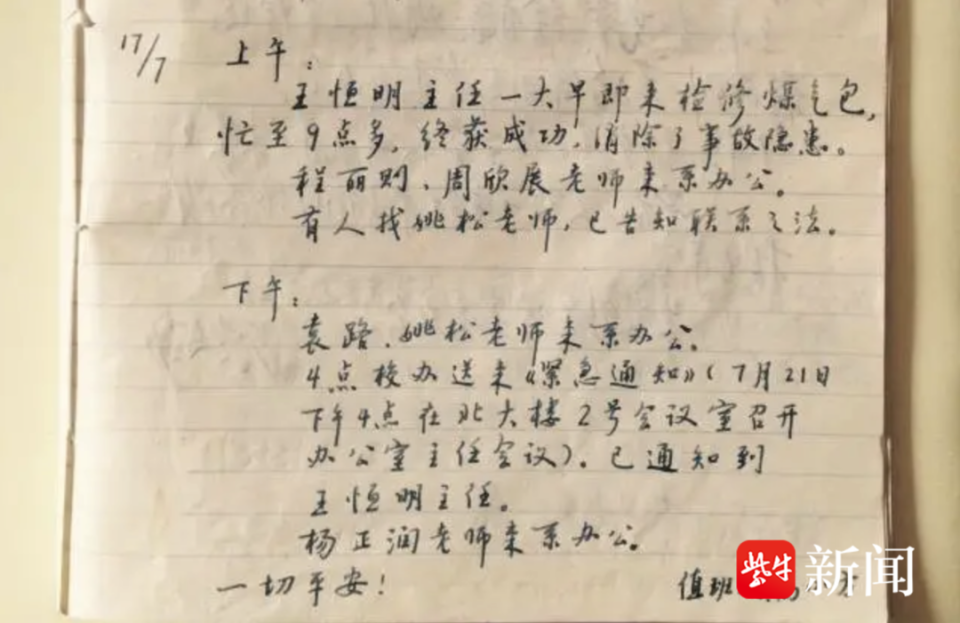 17/7 上午：
王恒明主任一大早即来检修煤气包，
忙至9点多，终获成功，消除了事故隐患。
程丽则、周欣展老师来系办公。
有人找姚松老师，已告知联系之法。
下午：
袁路、姚松老师来系办公。
4点校办送来《紧急通知》（7月21日
下午4点在北大楼2号会议室召开
办公室主任会议）。已通知到
王恒明主任。
杨正润老师来系办公。
一切平安！ 值班
紫牛新闻